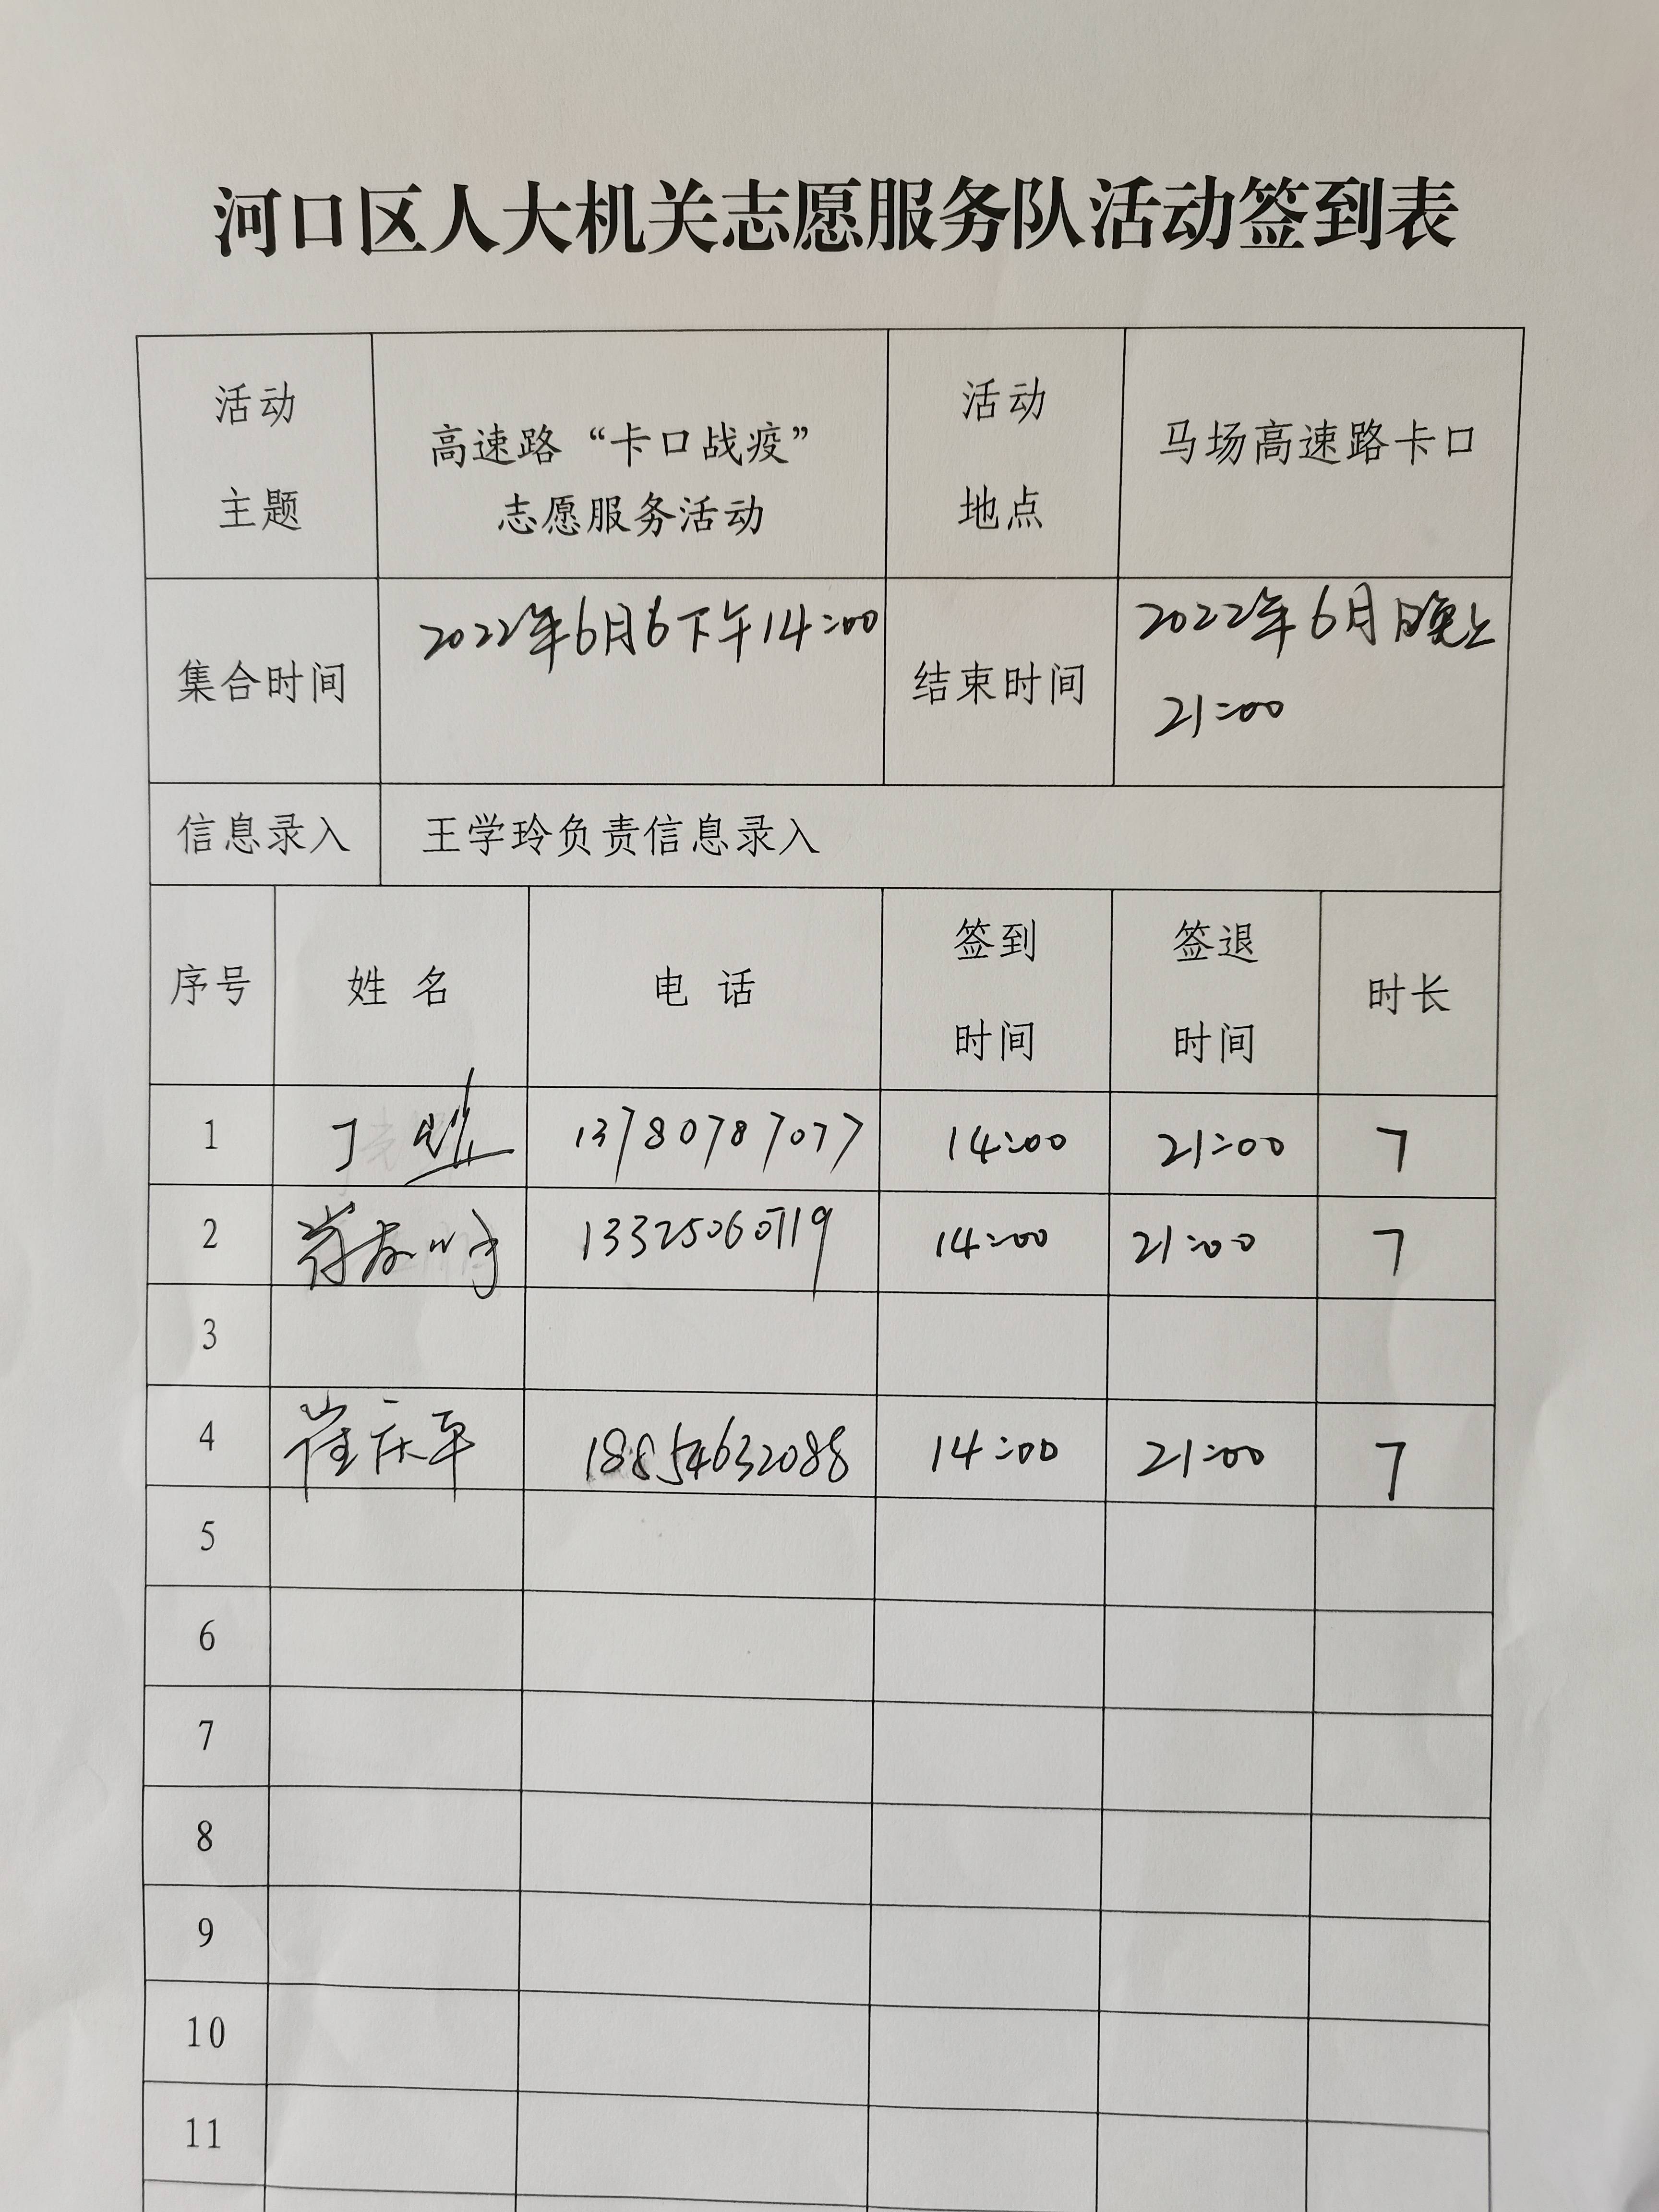 河口区人大机关志愿服务队活动签到表
活动
主题
高速路“卡口战疫”
志愿服务活动
活动
地点
马场高速路卡口
集合时间
2022年6月6下午14:00
结束时间
2022年6月 日晚上
21:00
信息录入
王学玲负责信息录入
序号
姓 名
电 话
签到
时间
签退
时间
时长
1 丁 13780787077 14:00 21:00 7
2 13325060719 14:00 21:00 7
3
4 崔庆平 18854632088 14:00 21:00 7
5
6
7
8
9
10
11